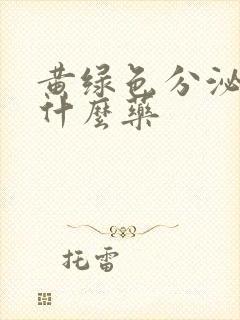 黄绿色分泌
什麼藥
托雷